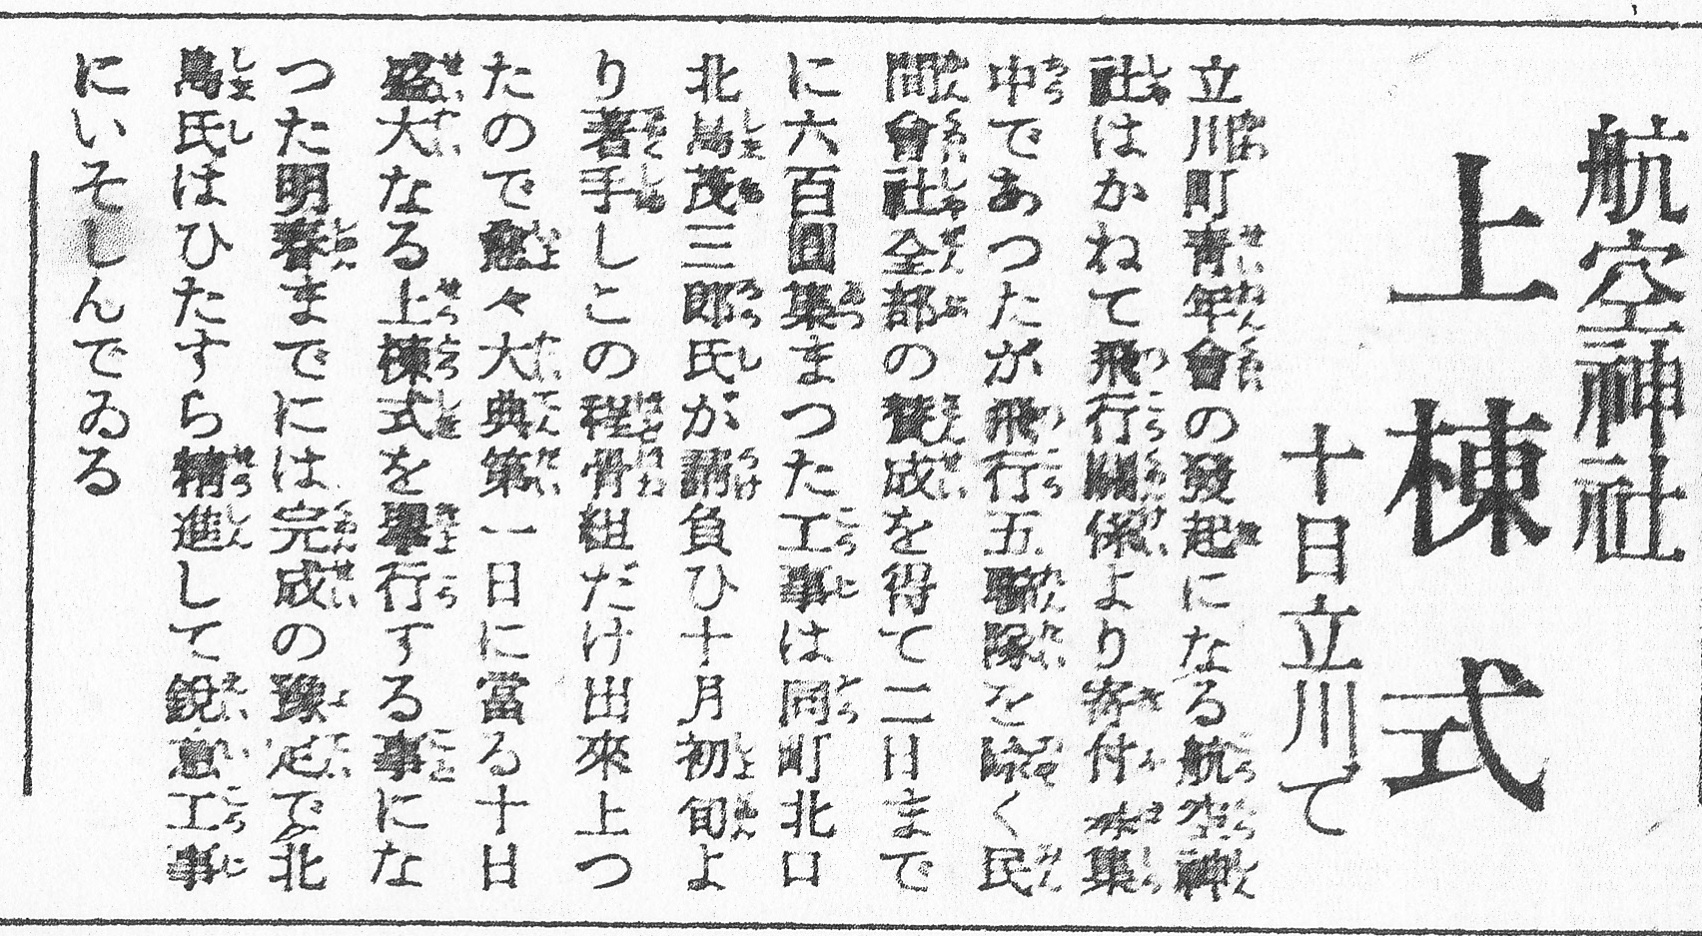 航空神社
上棟式
十日立川て
立川町青年會の發起になる航空神
社はかねて飛行關係より寄付募集
中であつたが飛行五聯隊を除く民
間會社全部の賛成を得て二日まで
に六百圓集まつた工事は同町北口
北島茂三郎氏が請負ひ十月初旬よ
り著手しこの程骨組だけ出來上つ
たので愈々大典第一日に當る十日
盛大なる上棟式を擧行する事にな
つた明春までには完成の豫定で北
島氏はひたすら精進して鋭意工事
にいそしんでゐる